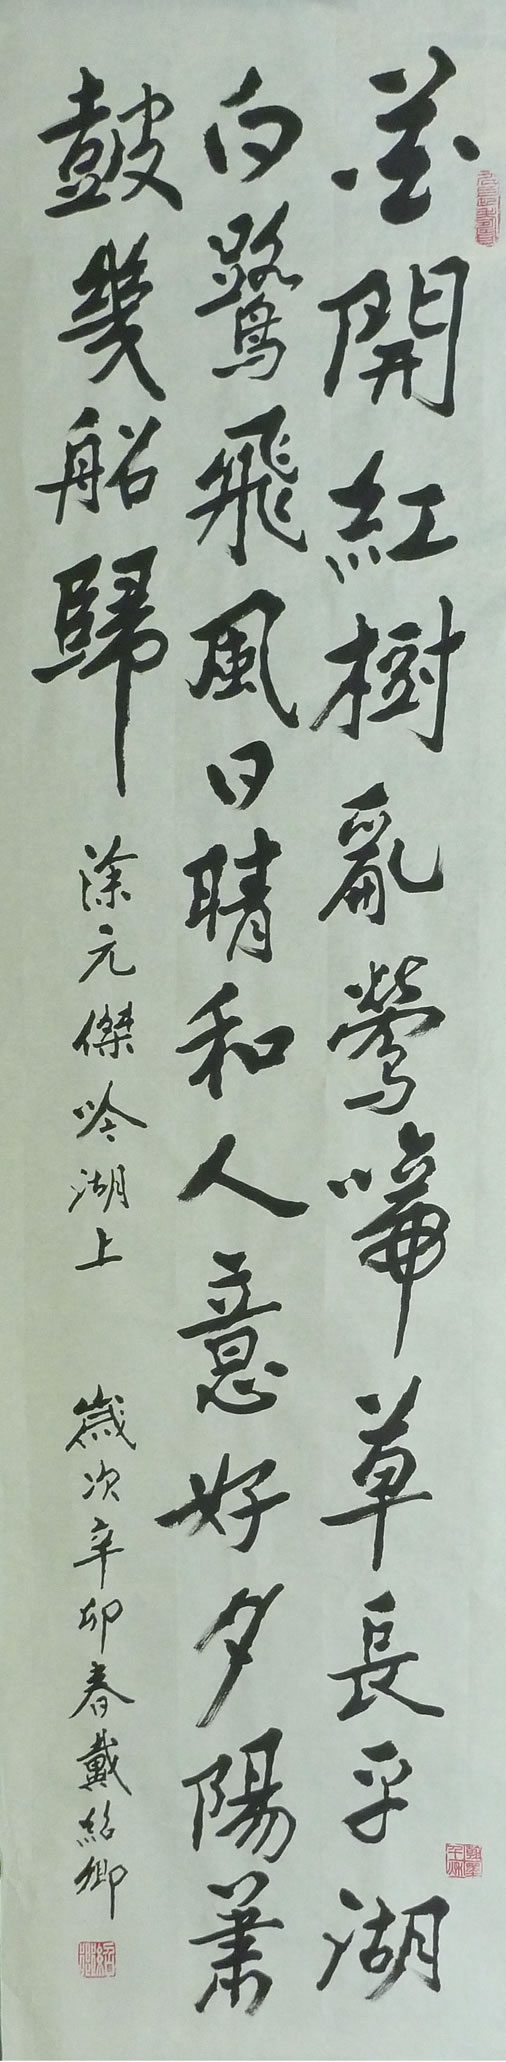 花開紅樹亂鶯啼草長平湖
白鷺飛風日晴和人意好夕陽蕭
鼓幾船歸
涂元傑吟湖上 歲次辛卯春戴紹卿